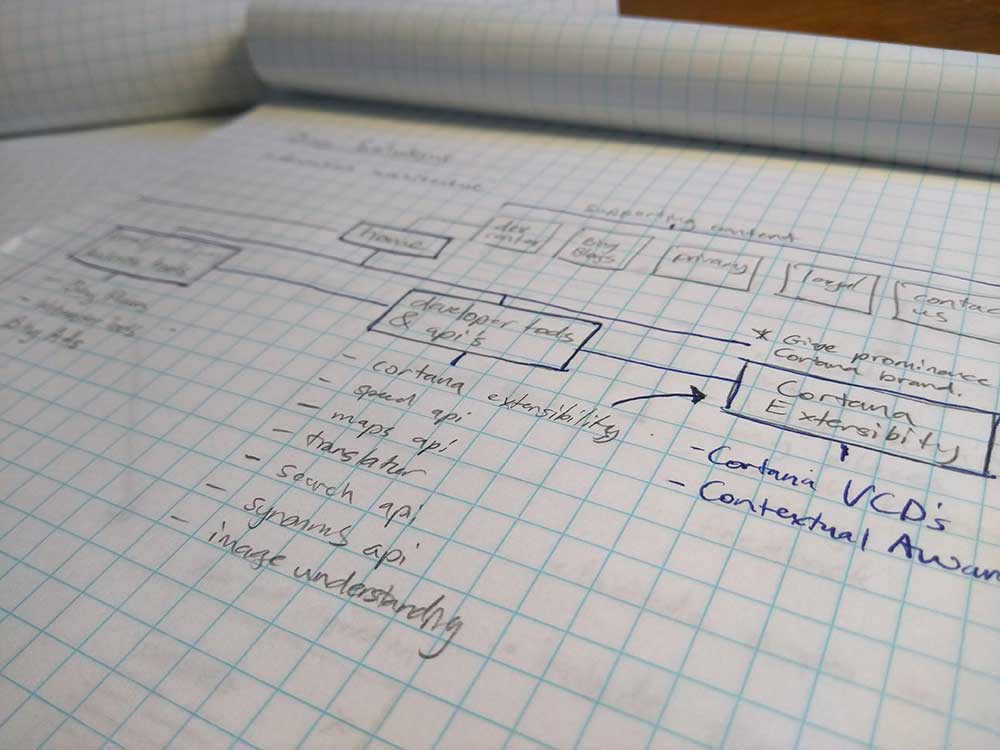 supporting content
home
dev
center
Bing
Blogs
privacy
legal
contac
us
developer tools
& api's
- cortana extensibility
- speech api
- maps api
- translatur
- search api
- synonms api
- image understanding
* Give prominence
Cortana brand.
Cortana
Extensibity
- Cortana VCD's
- Contextual Awar